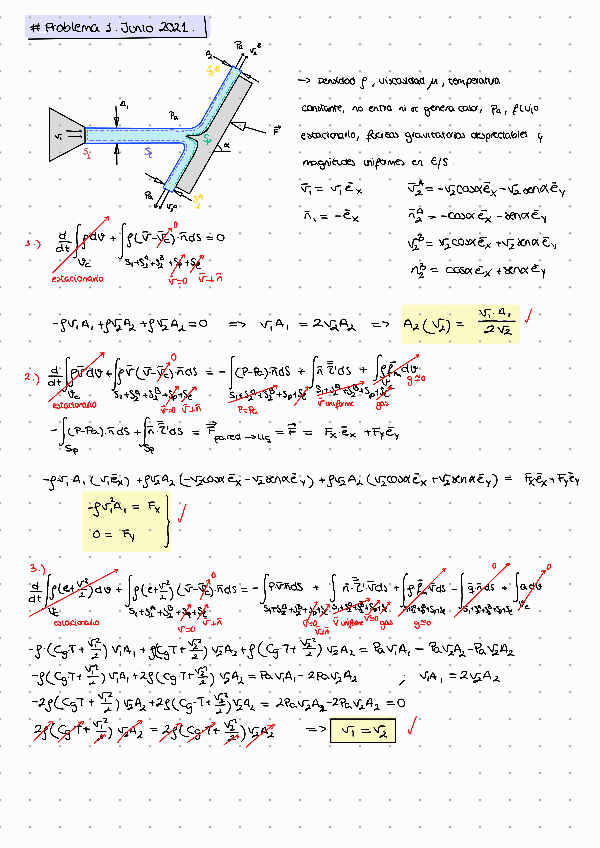 # Problema 1. Junio 2021.
→ Densidad ρ, viscosidad μ, temperatura
constante, no entra ni se genera calor, Pa, flujo
estacionario, fuerzas gravitatorias despreciables y
magnitudes uniformes en E/S.
v̄₁ = v₁ ēx    v̄₂ᴬ = -v₂cosα ēx - v₂senα ēy
n̄₁ = -ēx    n̄₂ᴬ = -cosα ēx - senα ēy
v̄₂ᴮ = v₂cosα ēx + v₂senα ēy
n̄₂ᴮ = cosα ēx + senα ēy
1.) d/dt ∫ρdv + ∫ρ(v̄-v̄c)·n̄dS = 0
Vc S₁+S₂ᴬ+S₂ᴮ+Sp+Sℓ
estacionario v̄=0 v̄⊥n̄
-ρv₁A₁ + ρv₂A₂ + ρv₂A₂ = 0 => v₁A₁ = 2v₂A₂ => A₂(v₂) = v₁·A₁/2v₂ ✓
2.) d/dt ∫ρv̄dv + ∫ρv̄(v̄-v̄c)·n̄dS = -∫(P-Pa)·n̄dS + ∫n̄·τ̄'dS + ∫ρf̄m dv
estacionario v̄=0 v̄⊥n̄ P=Pa v̄ uniforme gas g≃0
-∫(P-Pa)·n̄dS + ∫n̄·τ̄'dS = F̄ pared→liq = F̄ = Fx·ēx + Fyēy
-ρv₁A₁(v₁ēx) + ρv₂A₂(-v₂cosα ēx - v₂senα ēy) + ρv₂A₂(v₂cosα ēx + v₂senα ēy) = Fxēx + Fyēy
-ρv₁²A₁ = Fx
0 = Fy ✓
3.) d/dt ∫ρ(e+v²/2)dv + ∫ρ(e+v²/2)(v̄-v̄c)·n̄dS = -∫Pv̄n̄dS + ∫n̄·τ̄'·v̄dS + ∫ρf̄m·v̄dS - ∫q̄·n̄dS + ∫Qdv
estacionario v̄=0 v̄⊥n̄ v̄ uniforme gas g≃0
-ρ(CgT+v₁²/2)v₁A₁ + ρ(CgT+v₂²/2)v₂A₂ + ρ(CgT+v₂²/2)v₂A₂ = Pa v₁A₁ - Pa v₂A₂ - Pa v₂A₂
-ρ(CgT+v₁²/2)v₁A₁ + 2ρ(CgT+v₂²/2)v₂A₂ = Pa v₁A₁ - 2Pa v₂A₂ ; v₁A₁ = 2v₂A₂
-2ρ(CgT+v₁²/2)v₂A₂ + 2ρ(CgT+v₂²/2)v₂A₂ = 2Pa v₂A₂ - 2Pa v₂A₂ = 0
2ρ(CgT+v₁²/2)v₂A₂ = 2ρ(CgT+v₂²/2)v₂A₂ => v₁ = v₂ ✓